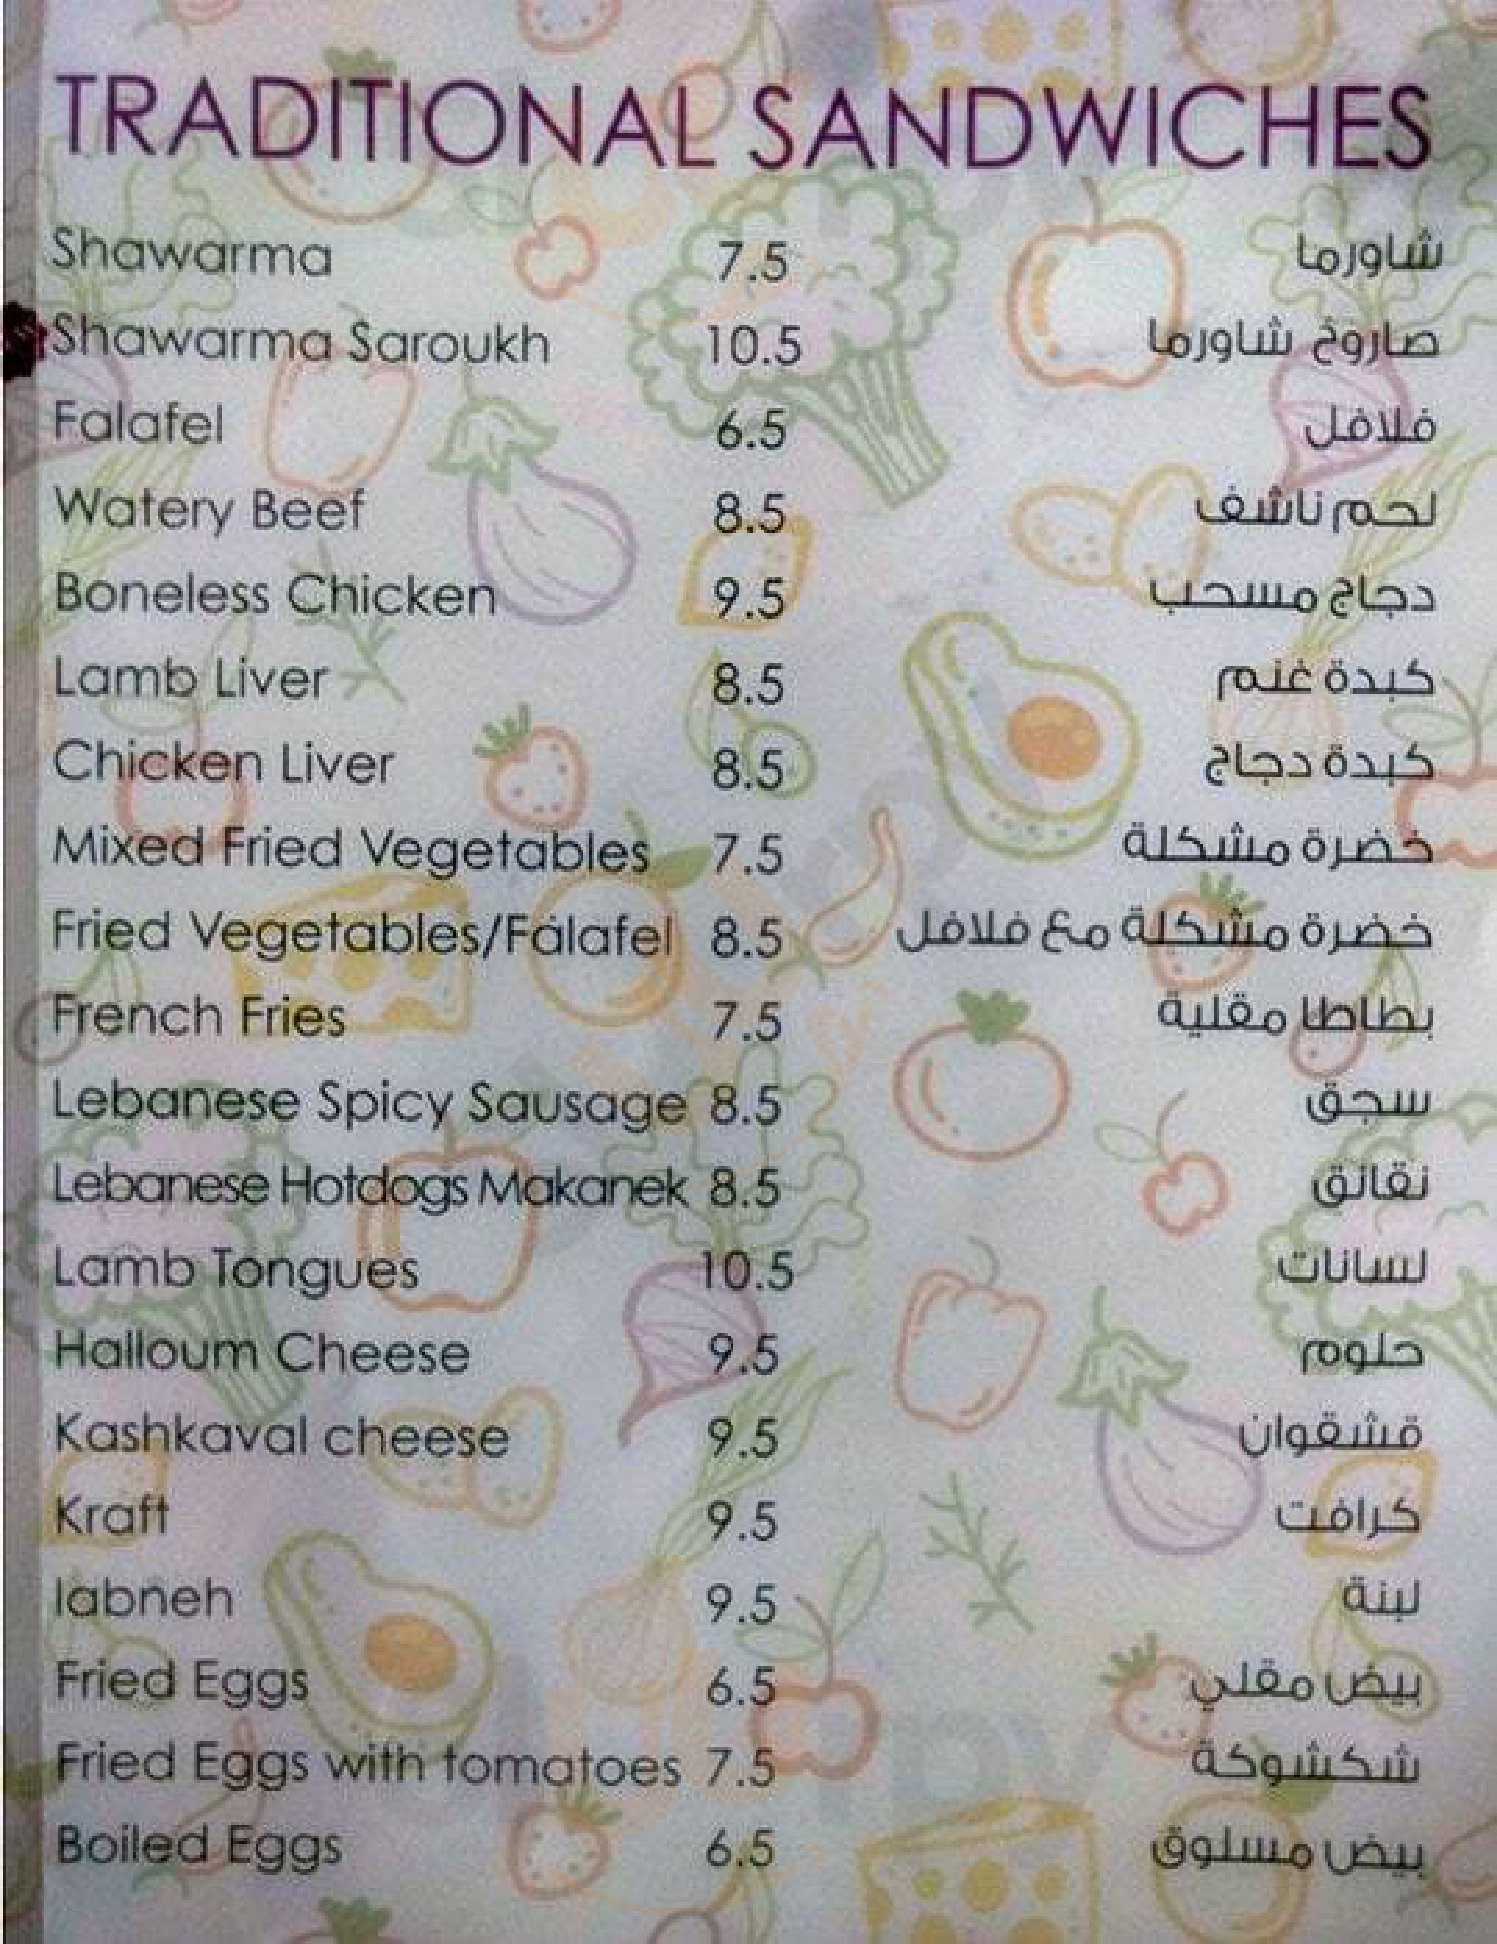 TRADITIONAL SANDWICHES
Shawarma 7.5 شاورما
Shawarma Saroukh 10.5 صاروخ شاورما
Falafel 6.5 فلافل
Watery Beef 8.5 لحم ناشف
Boneless Chicken 9.5 دجاج مسحب
Lamb Liver 8.5 كبدة غنم
Chicken Liver 8.5 كبدة دجاج
Mixed Fried Vegetables 7.5 خضرة مشكلة
Fried Vegetables/Falafel 8.5 خضرة مشكلة مع فلافل
French Fries 7.5 بطاطا مقلية
Lebanese Spicy Sausage 8.5 سجق
Lebanese Hotdogs Makanek 8.5 نقانق
Lamb Tongues 10.5 لسانات
Halloum Cheese 9.5 حلوم
Kashkaval cheese 9.5 قشقوان
Kraft 9.5 كرافت
labneh 9.5 لبنة
Fried Eggs 6.5 بيض مقلي
Fried Eggs with tomatoes 7.5 شكشوكة
Boiled Eggs 6.5 بيض مسلوق